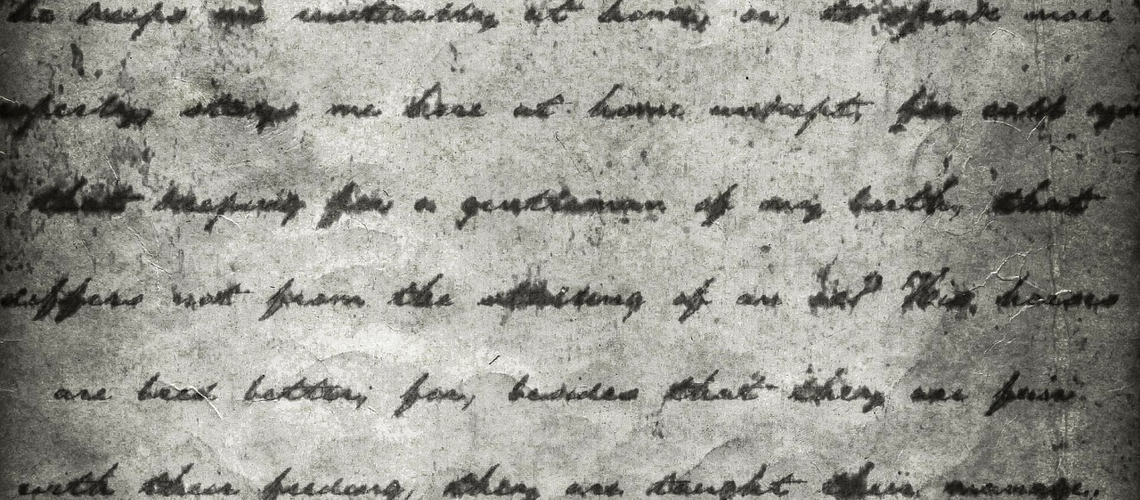 he keeps me rustically at home, or, to speak more
operly, stays me here at home unkept; for call you
that keeping for a gentleman of my birth, that
differs not from the stalling of an ox? His horses
are bred better; for, besides that they are fair
with their feeding, they are taught their manage,